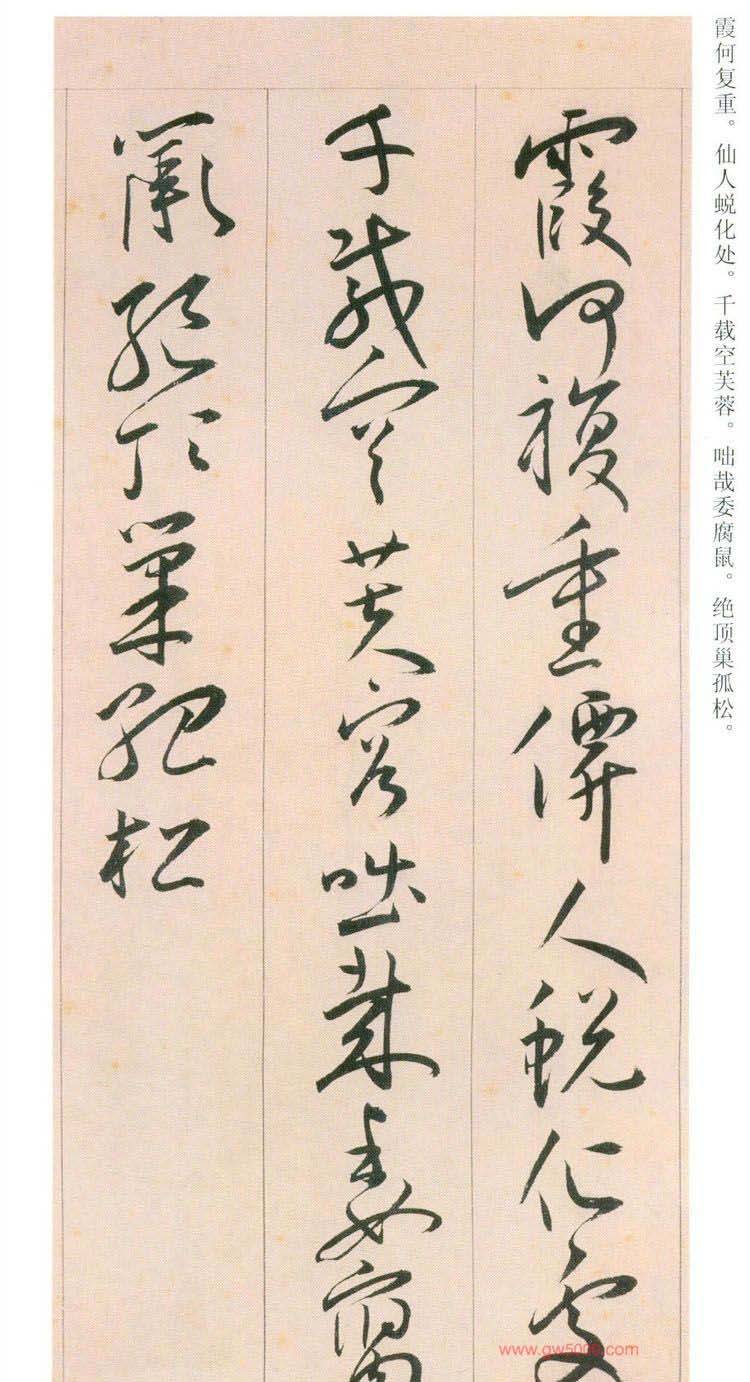 霞何复重。仙人蜕化处。千载空芙蓉。咄哉委腐鼠。绝顶巢孤松。
霞何複重僊人蜕化處
千載空芙容咄哉委腐
鼠絶頂巢孤松
www.gw5000.com